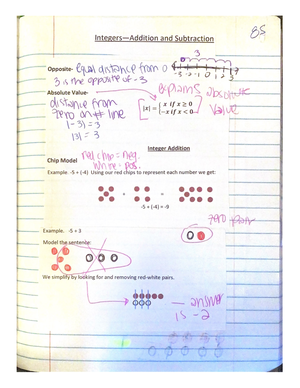 Integers—Addition and Subtraction
85
Opposite- Equal distance from 0
3 is the opposite of -3
3
-3 -2 -1 0 1 2 3
Absolute Value-
distance from
zero on # line
|-3| = 3
|3| = 3
|x| = { x if x ≥ 0
-x if x < 0
explains absolute
value
Integer Addition
Chip Model
red chip = neg.
white = pos.
Example. -5 + (-4) Using our red chips to represent each number we get:
+ =
-5 + (-4) = -9
zero pair
Example. -5 + 3
Model the sentence:
We simplify by looking for and removing red-white pairs.
answer
is -2